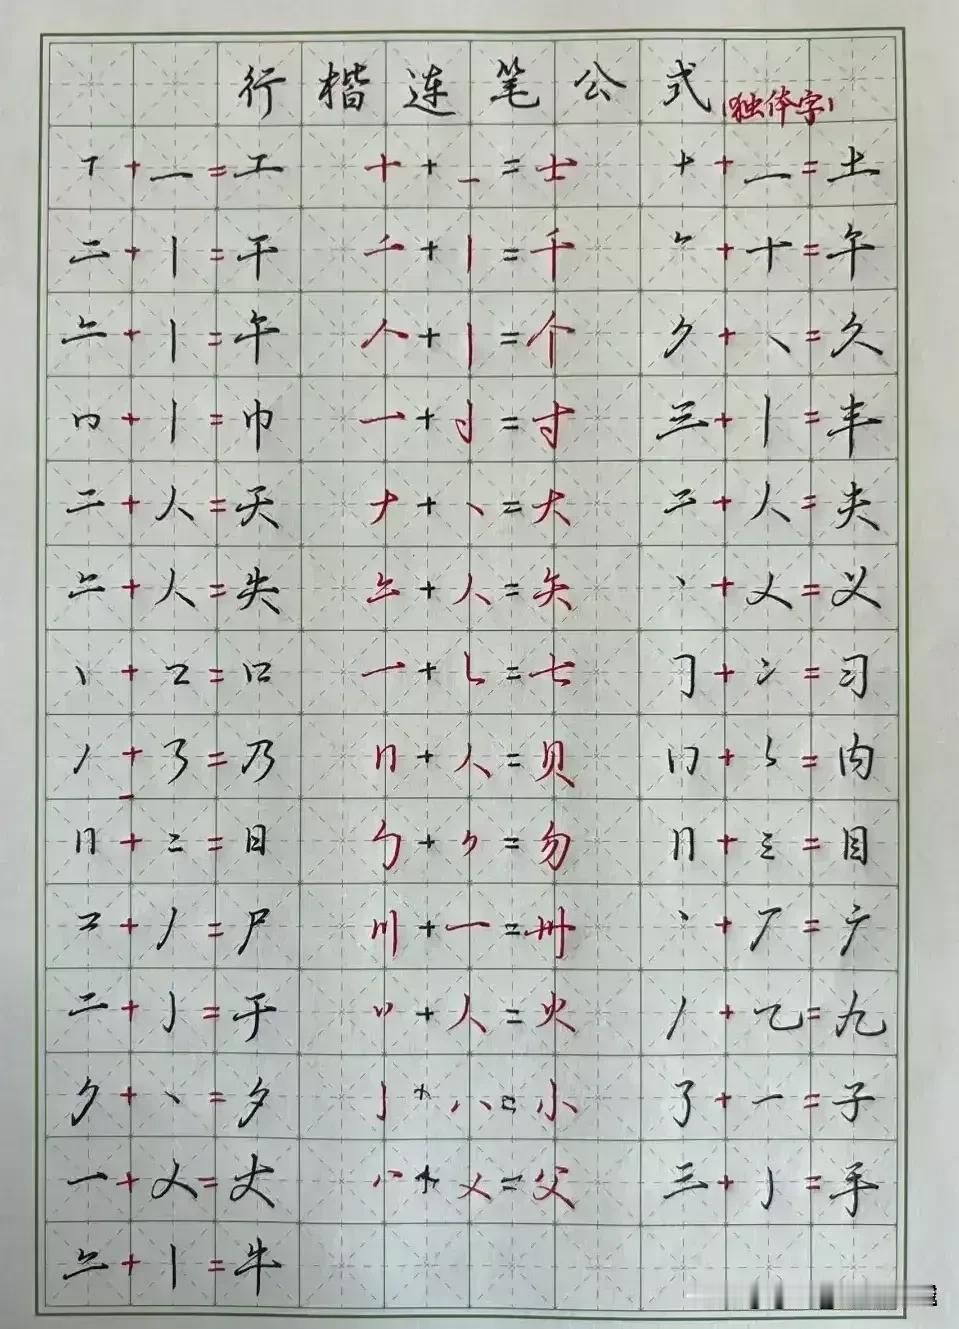 行楷连笔公式(独体字)
㇕+一=工 十+一=士 十+一=土
二+丨=干 𠂉+丨=千 𠂉+十=午
𠂉+丨=午 人+丨=个 ク+丶=久
冂+丨=巾 一+亅=寸 三+丨=丰
二+人=天 ナ+丶=大 二+人=夫
人=失 人=矢 丶+乂=义
丨+コ=口 一+乚=七 𠃌+冫=习
丿+㇋=乃 冂+人=贝 冂=内
冂+二=日 勹=勿 冂=目
コ+丿=尸 川+一=卅 丶+厂=广
二+亅=于 丷+人=火 丿+乙=九
夕 亅+八=小 了+一=子
一+乂=丈 八+乂=父 三+亅=手
丨=牛